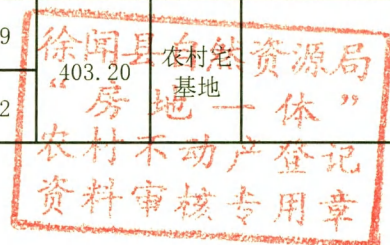 9
2
403.20
农村宅
基地
徐闻县自然资源局
“房地一体”
农村不动产登记
资料审核专用章